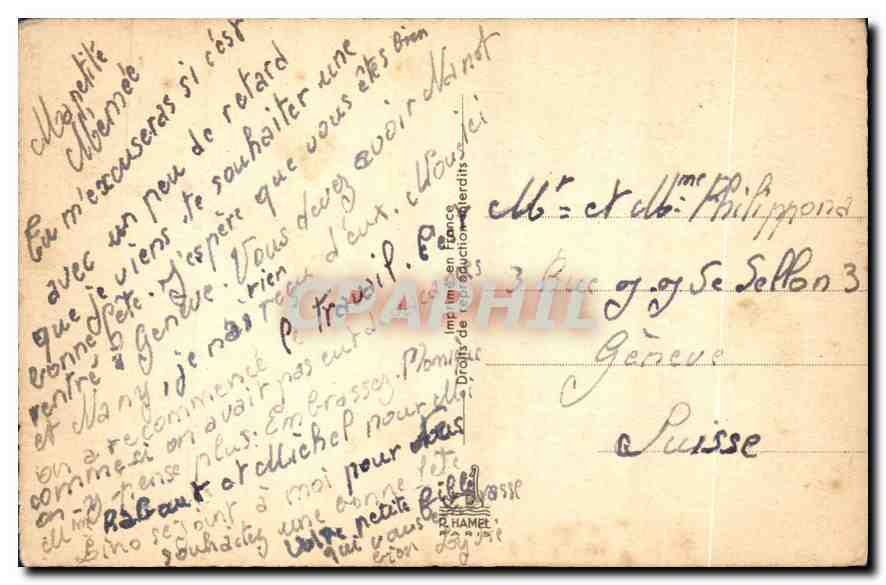 Ma petite
Mémée
Tu m'excuseras si c'est
avec un peu de retard
que je viens te souhaiter une
bonne fête. J'espère que vous êtes bien
rentré à Genève. Vous devez avoir Nanot
et Nany, je n'ais rien reçu d'eux. Nous ici
on a recommencé le travail.
comme si on avait pas eut
on y pense plus. Embrassez Monsieur
Rabout et Michel pour Moi
Mme Lino se joint à moi pour vous
souhaitez une bonne fête
Votre petite fille
qui vous embrasse
bien
Mr et Mme Philippona
3 Rue J.J de Sellon 3
Génève
Suisse
Imprimé en France
Droits de reproduction interdits
P. HAMEL
PARIS
CPAPHIL